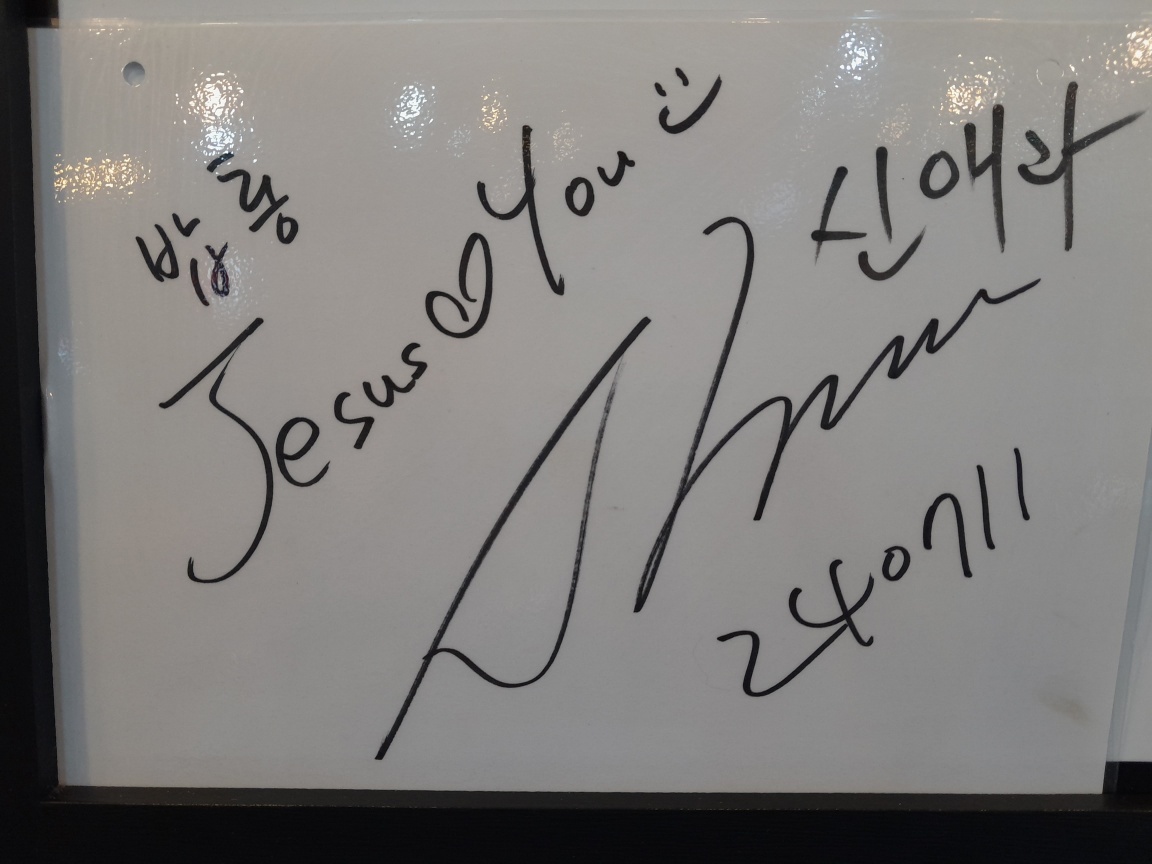 Jesus♡You
신애라
240711